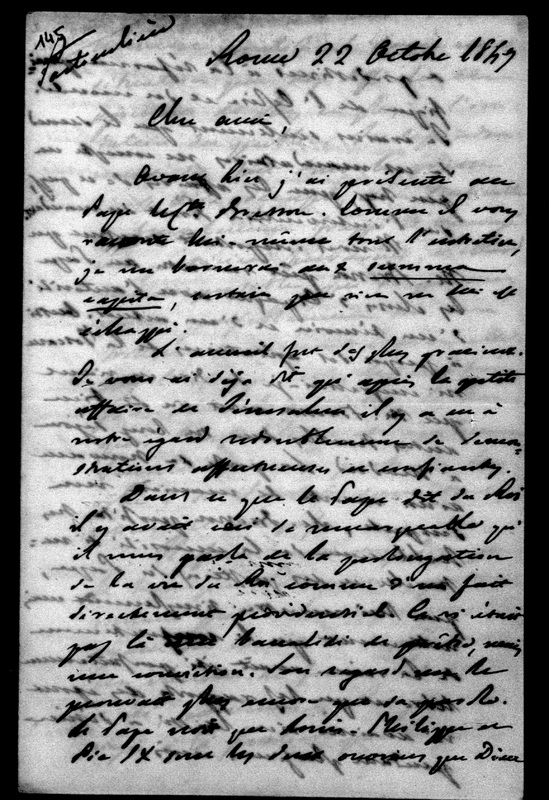 145
Particulière
Rome 22 Octobre 1847
Cher ami,
Avant hier j'ai présenté au
Pape le Cte Bresson. Comme il vous
raconte lui-même tout l'entretien,
je me bornerai aux summa
capita, certain que rien ne lui est
échappé.
L'accueil fut des plus gracieux.
Je vous ai déjà dit qu'après la petite
affaire de Jérusalem il y a eu à
notre égard redoublement de démon-
strations affectueuses et confiantes.
Dans ce que le Pape dit du Roi
il y avait ceci de remarquable qu'
il nous parla de la prolongation
de la vie du Roi comme d'un fait
directement providentiel. Ce n'était
pas là banalité de prêtre, mais
une conviction. Son regard me le
prouvait plus encore que sa parole.
Le Pape voit que Louis-Philippe et
Pie IX sont les deux hommes que Dieu